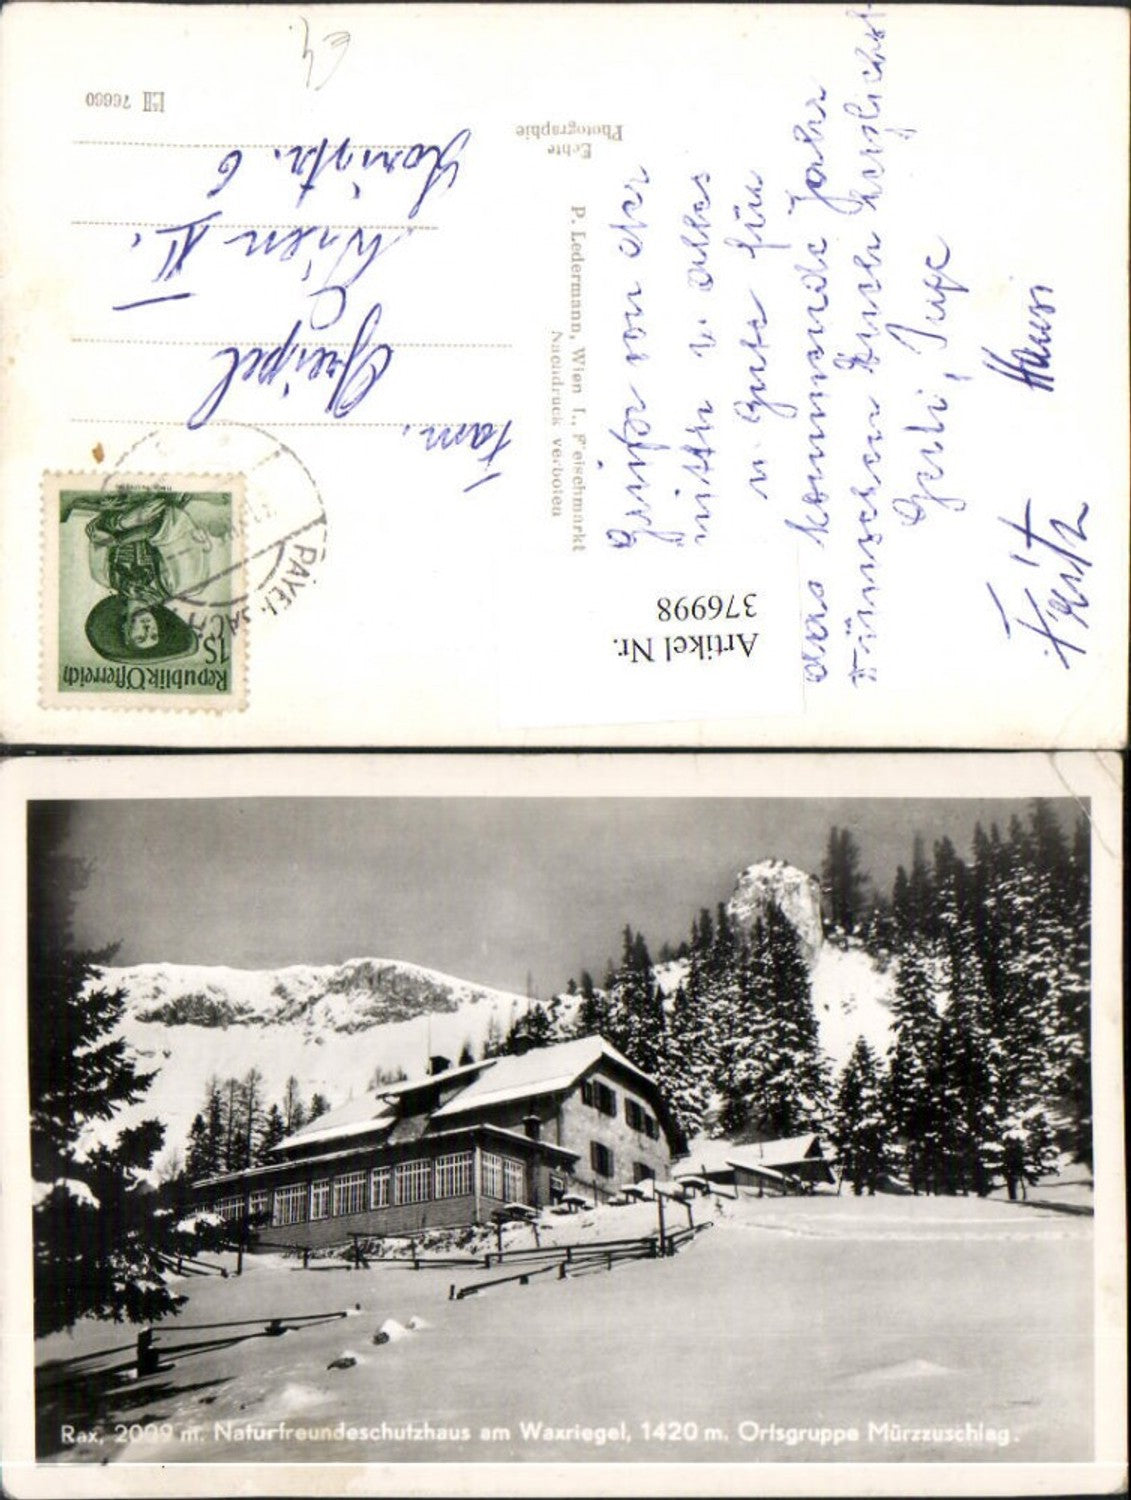 Grüße von der
Hütte u. alles
Gute für
das kommende Jahr
wünschen Euch herzlichst
Gerti, Inge
Hansi
Fritz
Fam.
Greipel
Wien
6
Echte
Photographie
P. Ledermann, Wien I., Fleischmarkt
Nachdruck verboten
76660
Republik Österreich
1S
PAYER
Artikel Nr.
376998
Rax, 2009 m. Naturfreundeschutzhaus am Waxriegel, 1420 m. Ortsgruppe Mürzzuschlag.